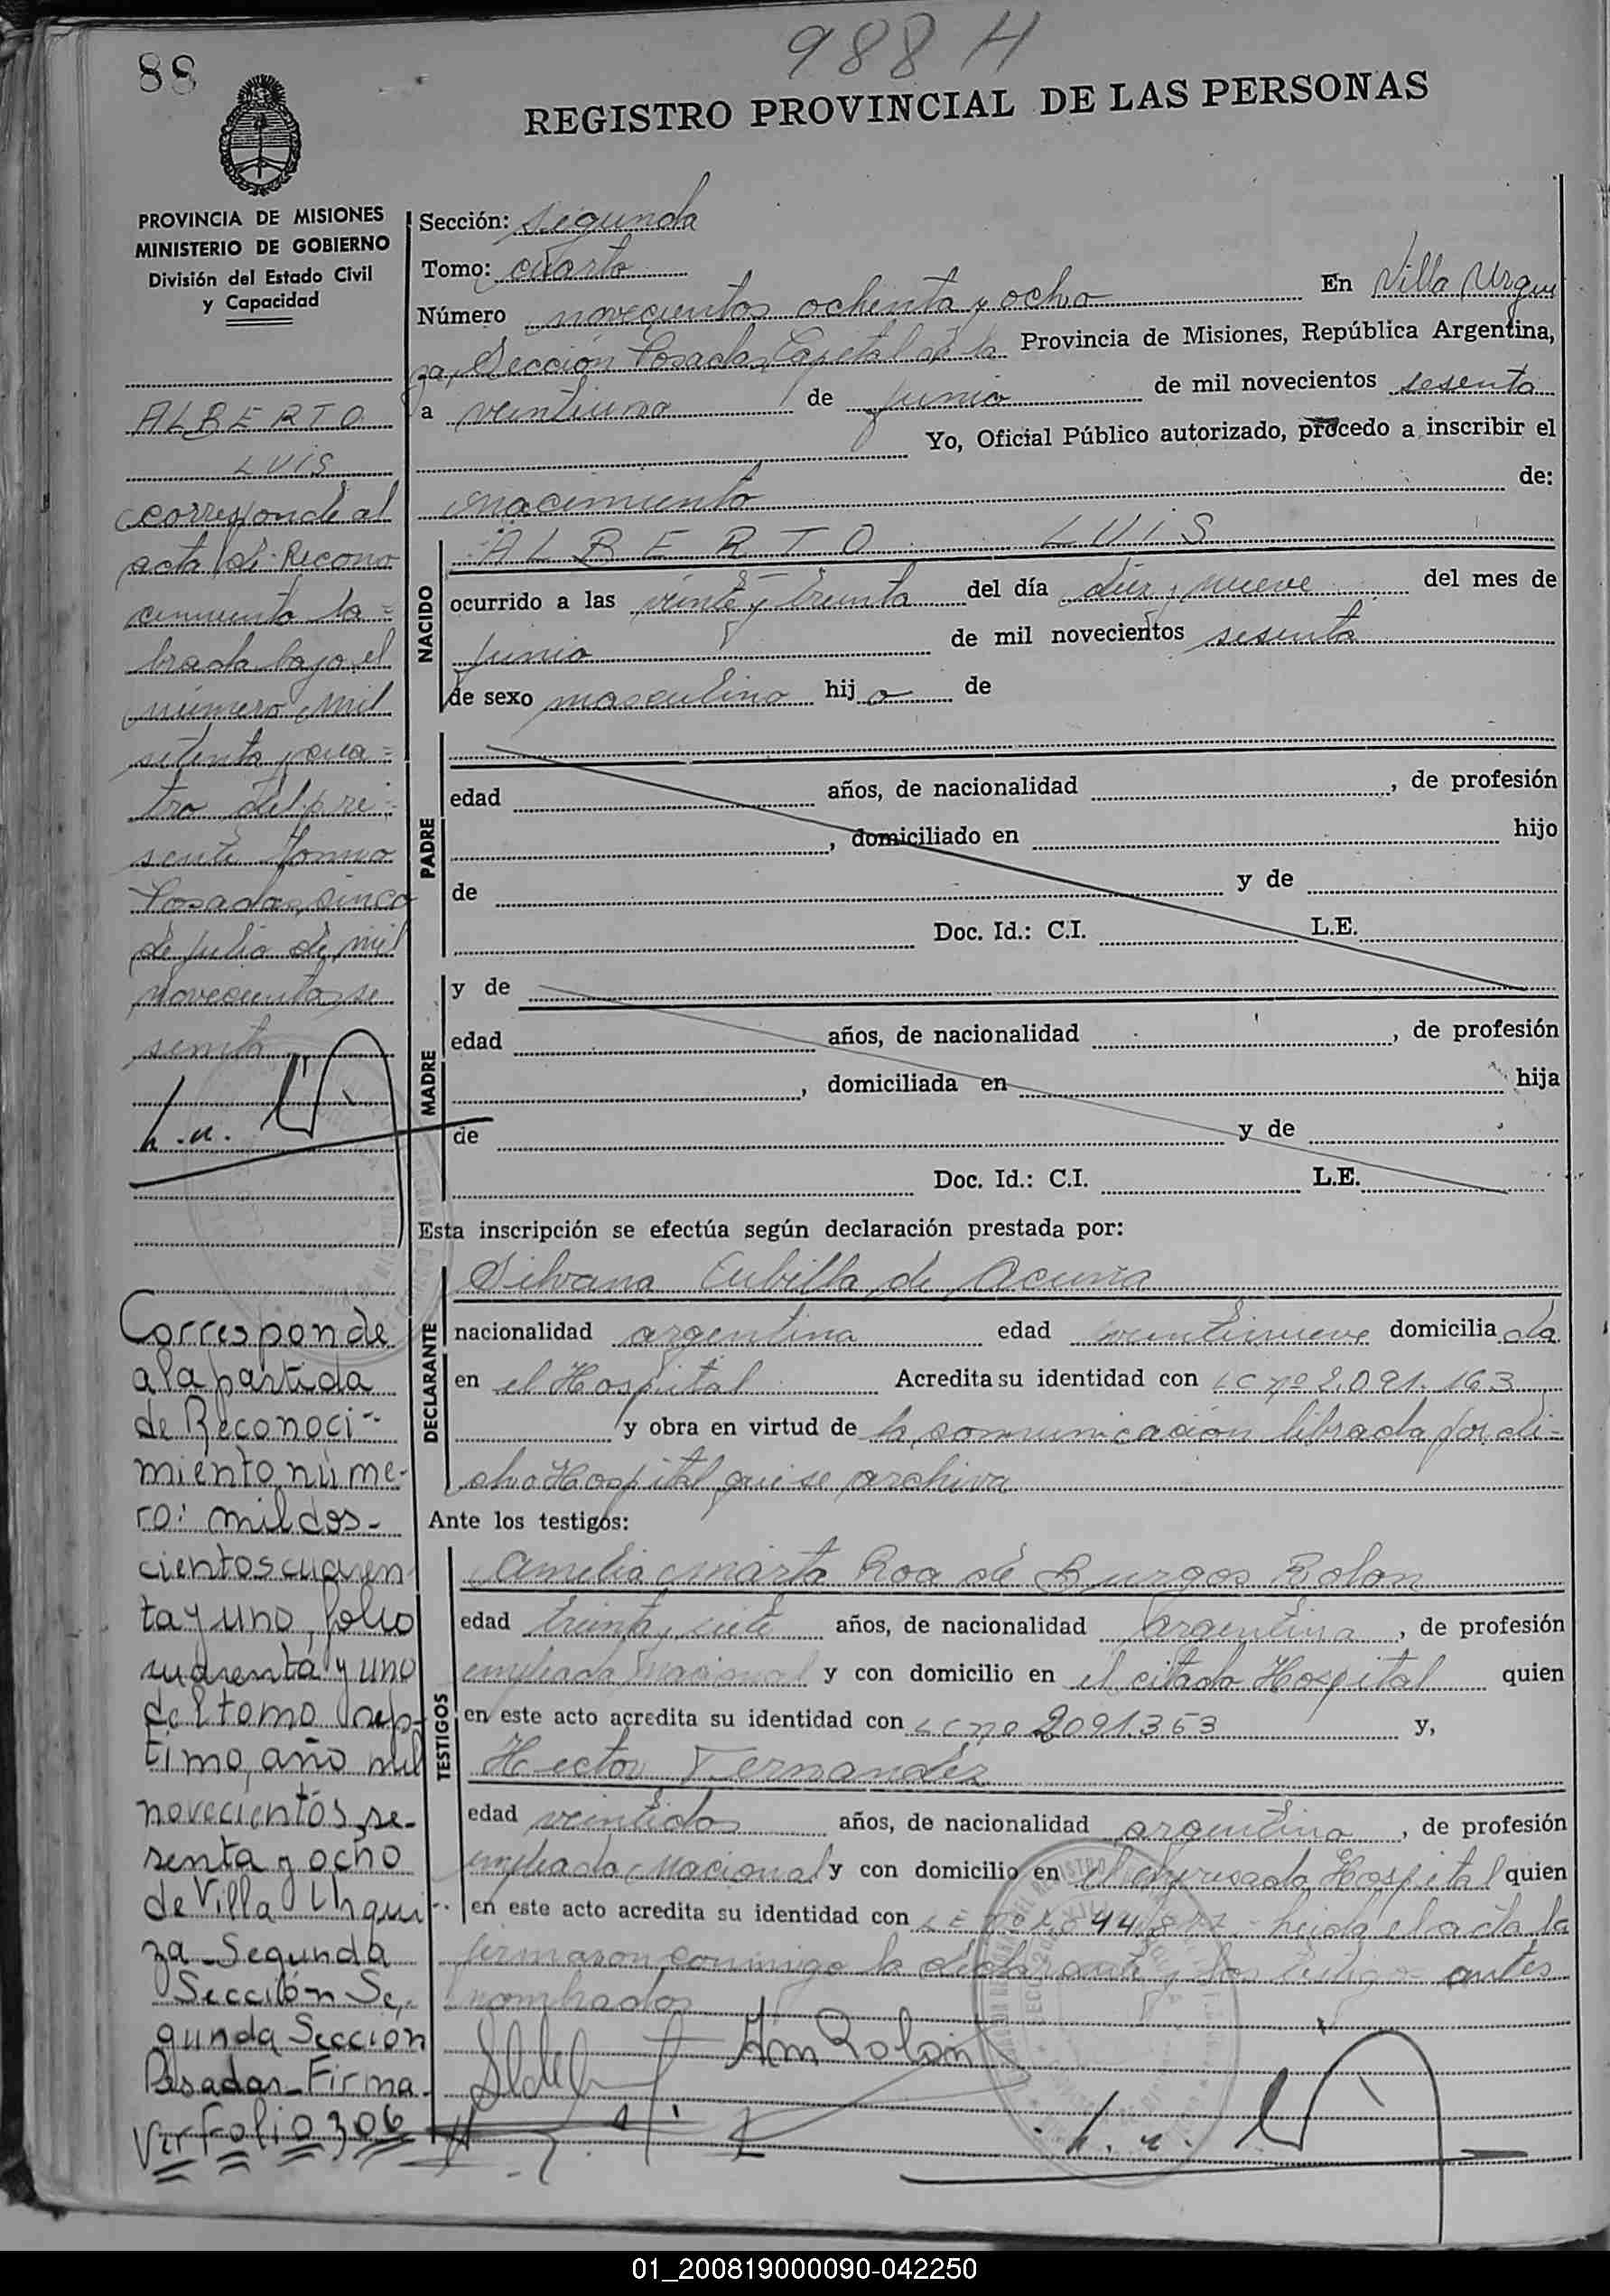 88
988 H
REGISTRO PROVINCIAL DE LAS PERSONAS
PROVINCIA DE MISIONES
MINISTERIO DE GOBIERNO
División del Estado Civil
y Capacidad
ALBERTO
LUIS
corresponde al
acta de Recono
cimiento la=
brada bajo el
número mil
setenta y cua=
tro del pre=
sente Tomo
Posadas, cinco
de julio de mil
novecientos se
senta
Corresponde
a la partida
de Reconoci-
miento núme-
ro: mil dos-
cientos cuaren
ta y uno, folio
cuarenta y uno
del tomo sép-
timo, año mil
novecientos se-
senta y ocho
de Villa Urqui
za Segunda
Sección Se-
gunda Sección
Posadas-Firma-
Ver Folio 306
Sección: Segunda
Tomo: cuarto
Número novecientos ochenta y ocho En Villa Urqui
za, Sección Posadas, Capital de la Provincia de Misiones, República Argentina,
a veintiuno de junio de mil novecientos sesenta
Yo, Oficial Público autorizado, procedo a inscribir el
nacimiento de:
NACIDO
ALBERTO LUIS
ocurrido a las veinte y treinta del día diez y nueve del mes de
junio de mil novecientos sesenta
de sexo masculino hijo de
PADRE
edad años, de nacionalidad , de profesión
, domiciliado en hijo
de y de
Doc. Id.: C.I. L.E.
MADRE
y de
edad años, de nacionalidad , de profesión
, domiciliada en hija
de y de
Doc. Id.: C.I. L.E.
Esta inscripción se efectúa según declaración prestada por:
DECLARANTE
Silvana Cubilla de Acuña
nacionalidad argentina edad veintinueve domiciliada
en el Hospital Acredita su identidad con LC nº 2.091.163
y obra en virtud de la comunicación librada por di=
cho Hospital que se archiva
Ante los testigos:
TESTIGOS
Amelia Marta Roa de Burgos Rolon
edad treinta y siete años, de nacionalidad argentina, de profesión
empleada Nacional y con domicilio en el citado Hospital quien
en este acto acredita su identidad con LC nº 2091.353 y,
Hector Fernandez
edad veintidos años, de nacionalidad argentina, de profesión
empleado Nacional y con domicilio en el expresado Hospital quien
en este acto acredita su identidad con LE nº leida el acta la
firmaron conmigo la declarante y los testigos antes
nombrados
AmRolon
01_200819000090-042250